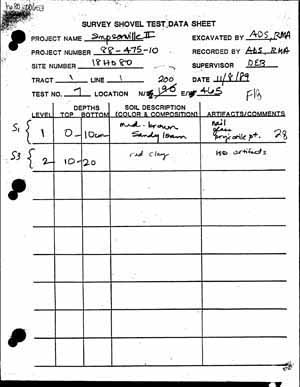 SURVEY SHOVEL TEST DATA SHEET
PROJECT NAME Simpsonville II EXCAVATED BY ADS, RMA
PROJECT NUMBER 88-475-10 RECORDED BY ADS, RMA
SITE NUMBER 18HO80 SUPERVISOR DEB
TRACT 1 LINE 1 200 DATE 11/8/89
TEST NO. 7 LOCATION N/ 190 E/ 405 F/B
LEVEL DEPTHS TOP BOTTOM SOIL DESCRIPTION (COLOR & COMPOSITION) ARTIFACTS/COMMENTS
S1 1 0-10cm med. brown Sandy loam nail glass projectile pt. 28
S3 2 10-20 red clay no artifacts